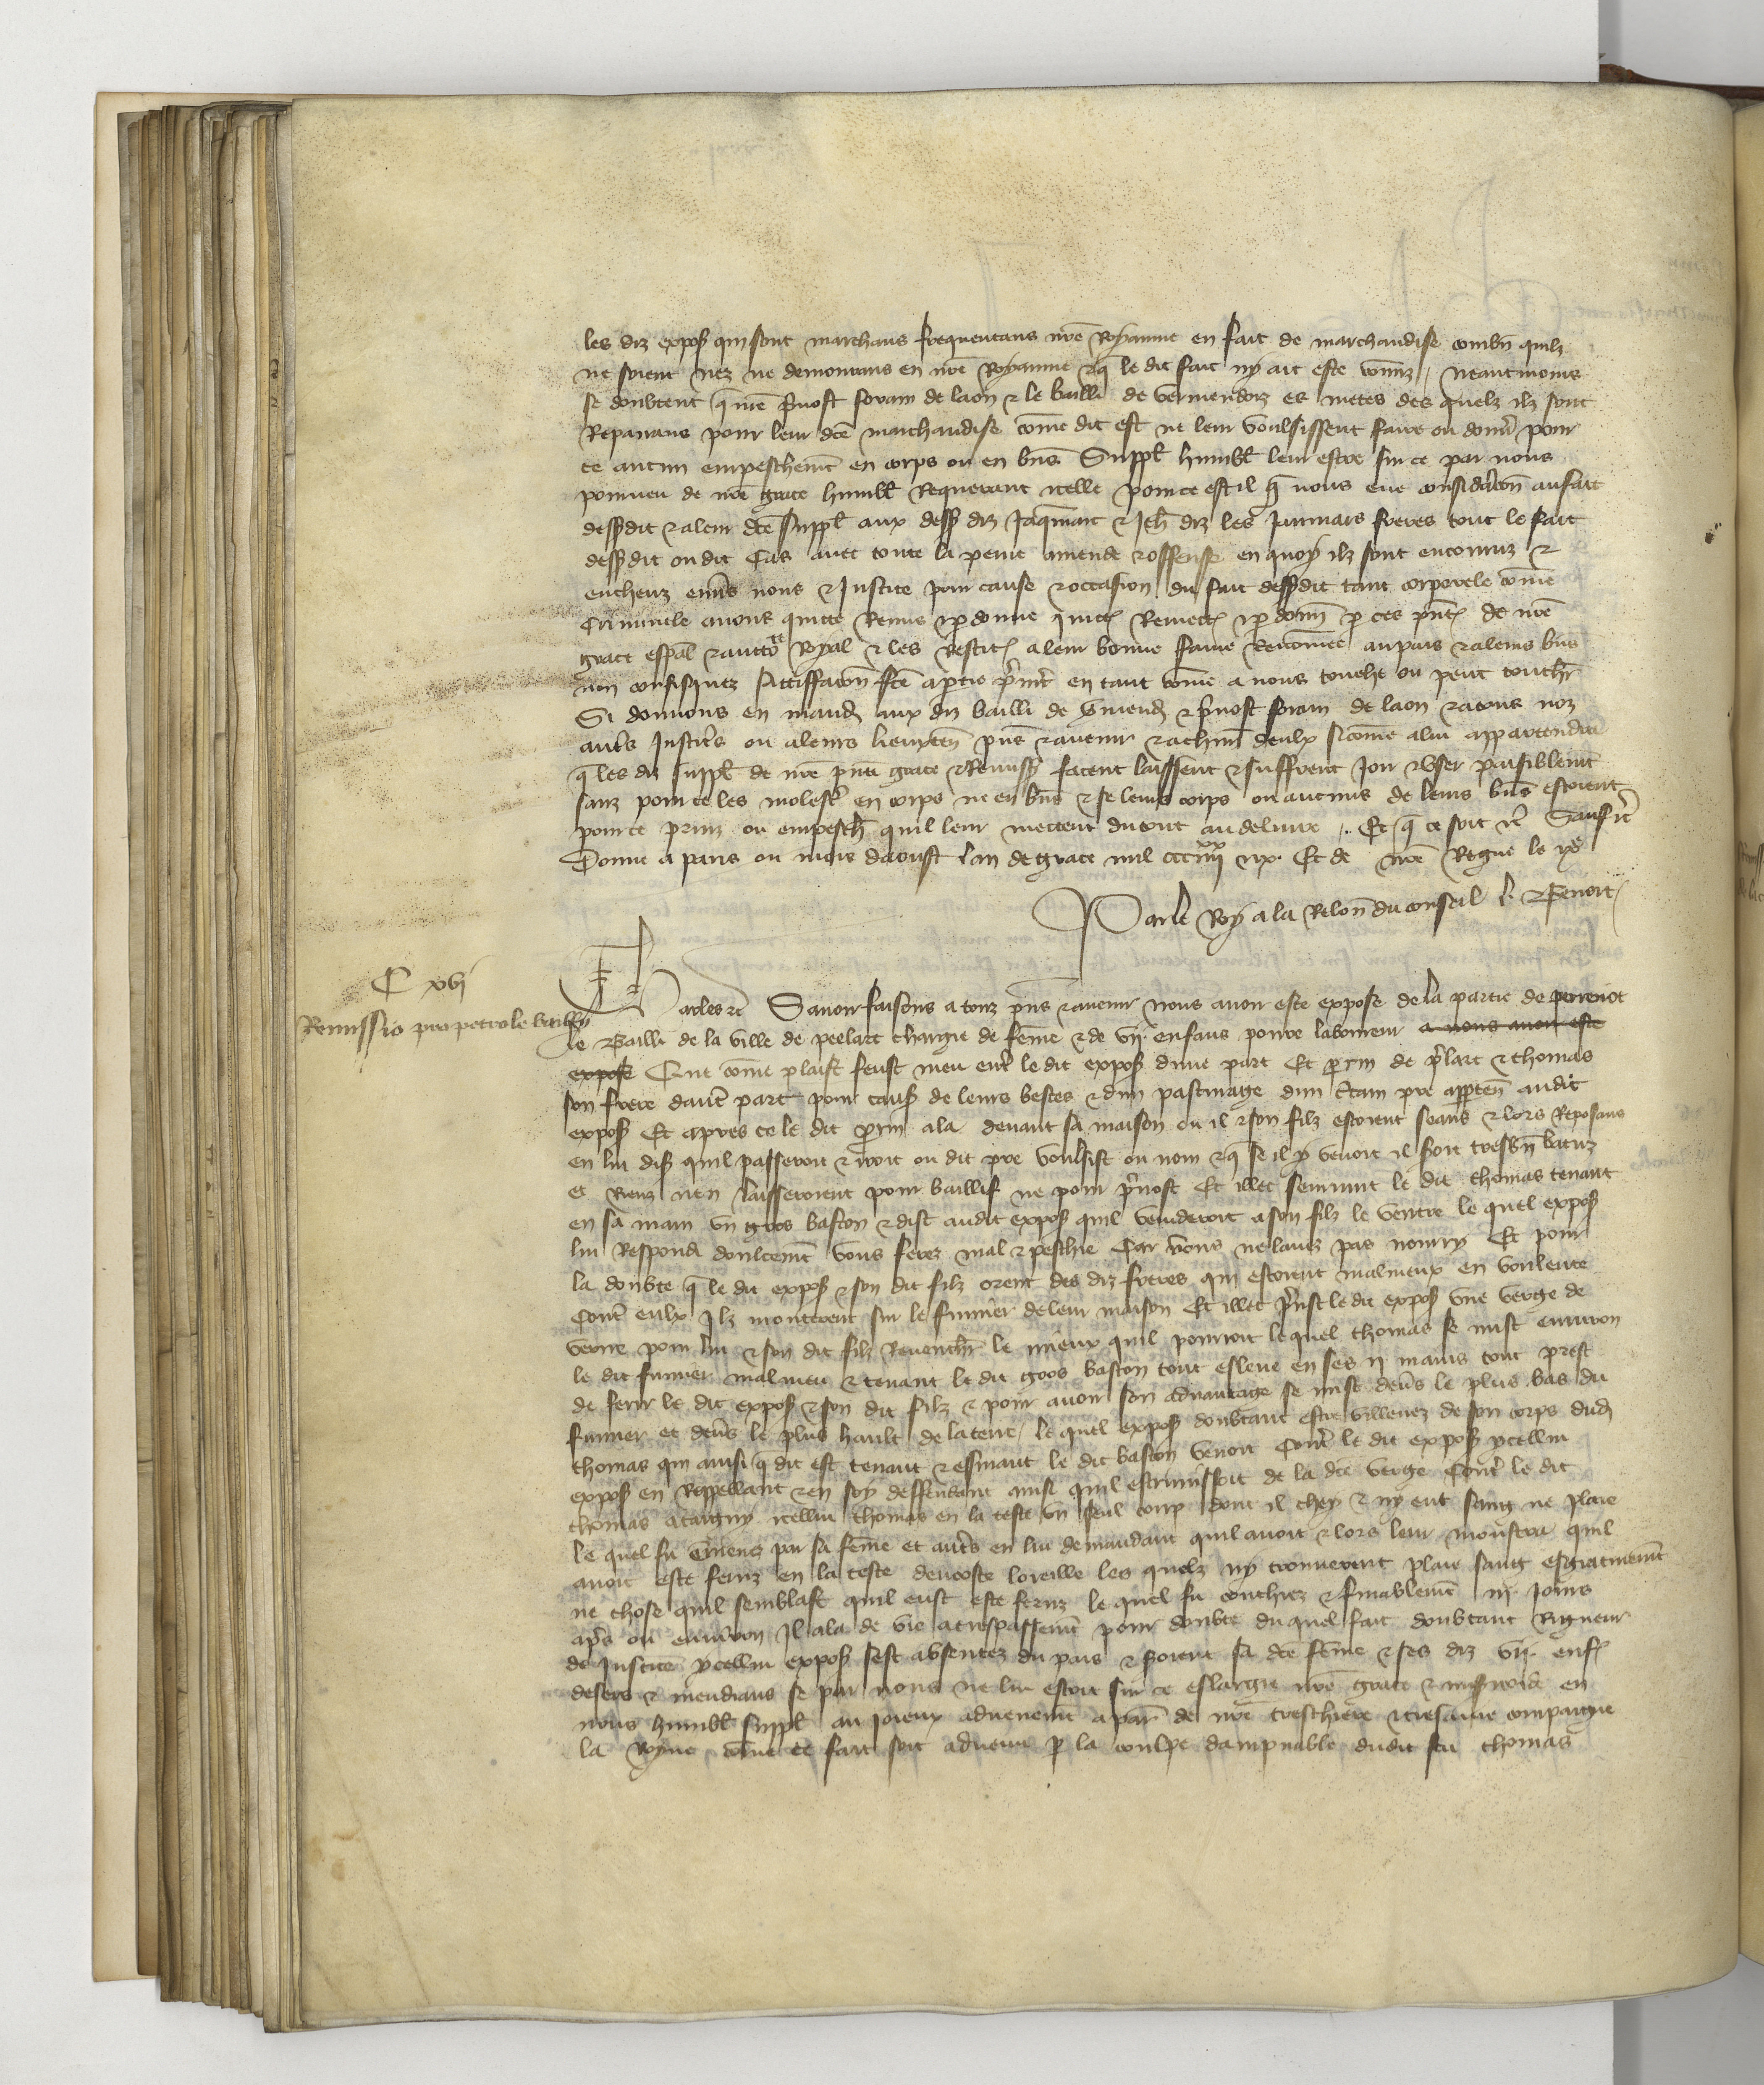 les diz expos qui sont marchans frequentans nre Royaume en fait de marchandise combn quilz
ne soient nez ne demourans en nre Royaume & q le dit fait ny ait este comis / neantmoins
se doubtent q nre pvost forain de laon & le bailli de vermendoiz es metes des quelz ilz sont
Repairans pour leur dce marchandise come dit est ne leur voulsissent faire ou doner pour
ce aucun empeschemt en corps ou en bns Suppl humbl leur estre sur ce par nous
pourveu de nre grace humbl Requerant icelle pour ce est il q nous eue consideracon au fait
dessdit & a leur dce suppl aux dess diz Jaqmart & Jeh diz les freres tout le fait
dessdit ou dit Cas avec toute la peine amende & offense en quoy ilz sont encouruz &
encheuz envs nous & Justice pour cause & occasion du fait dessdit tant corporele come
Criminele avons quicte Remis & pdonne quict Remect & pdonn p ces pntes de nre
grace espal & auctorite Royal & les Restit a leur bonne fame Renomee au pais & a leurs bns
non confisquez satiffacon fce a ptie premt en tant come a nous touche ou peut touchr
Si donnons en mand aux diz bailli de vmend & pvost forain de laon & a tous noz
autrs Justicrs ou a leurs lieuxten pns & avenir & a chun deulx si come a lui appartendra
q les diz suppl de nre pnte grace & Remiss facent laissent & suffrent Joir & user paisiblemt
sanz pour ce les molestr en corps ne en bns & se leurs corps ou aucuns de leurs bns estoient
pour ce prins ou empesch quil leur mectent du tout au delivre .. Et q ce soit &c Sauf &c
Donne a paris ou mois daoust lan de grace mil ccc iiii xx ix Et de nre Regne le ixe
Par le Roy a la Relon du conseil L. & Benoit
C xvj
Remissio pro petro le bailly
Karles &c Savoir faisons a touz pns & avenir nous avoir este expose de la partie de perrenot
le Bailli de la ville de peelart chargie de feme & de vij enfans povre laboureur a nous avoir este
expose Que come plaist feust meu entr le dit expos dune part Et prin de plart & thomas
son frere dautr part pour caus de leurs bestes & dun pasturage dun ctain pre appten audit
expos Et apres ce le dit prin ala devant sa maison ou il & son filz estoient seans & lors Reposans
en lui dis quil passeroit & iroit ou dit pre voulsist ou nom & q se il y venoit il soit tresbn batuz
et Rienz nen laisseroient pour baillif ne pour pvost Et illec survint le dit thomas tenant
en sa main un gros baston & dist audit expos quil fenderoit a son filz le ventre le quel expos
lui Respondi doulcemt vous ferez mal & peschie Car vous ne lavez pas nourry Et pour
la doubte q le dit expos & son dit filz orent des diz freres qui estoient malmeux en voulente
Contr eulx Ilz monterent sur le fumier de leur maison Et illec prist le dit expos une verge de
verne pour lui & son dit filz Revenchr le mieux quil pourroit le quel thomas se mist environ
le dit fumier malmeu & tenant le dit gros baston tout esleve en ses ij mains tout prest
de ferir le dit expos & son dit filz & pour avoir son advantage se mist devs le plus bas du
fumier et devs le plus hault de la terre / le quel expos doubtant estre villenez de son corps dud
thomas qui ainsi q dit est tenant & esmant le dit baston venoit Contr le dit expos ycellui
expos en Reppellant & en soy deffendant ainsi quil escrimissoit de la dce verge Contr le dit
thomas ataigny icellui thomas en la teste un seul coup dont il chey & ny eut sang ne plaie
le quel fu emenez par sa feme et autrs en lui demandant quil avoit & lors leur monstra quil
avoit este feruz en la teste dencoste loreille les quelz ny trouverent plaie sang esgratinemt
ne chose quil semblast quil eust este feruz le quel fu couchiez & finablemt iij jours
aprs ou environ Il ala de vie a trespassemt pour doubte du quel fait doubtant Rigueur
de Justice ycellui expos sest absentez du pais & soient sa dce feme & ses diz vij enf
desers & mendians se par nous ne lui estoit sur ce eslargie nre grace & misicorde en
nous humbl suppl au joieux advenemt a par de nre treschiere & tresamee compaigne
la Royne come ce fait soit advenu p la coulpe dampnable dudit feu thomas